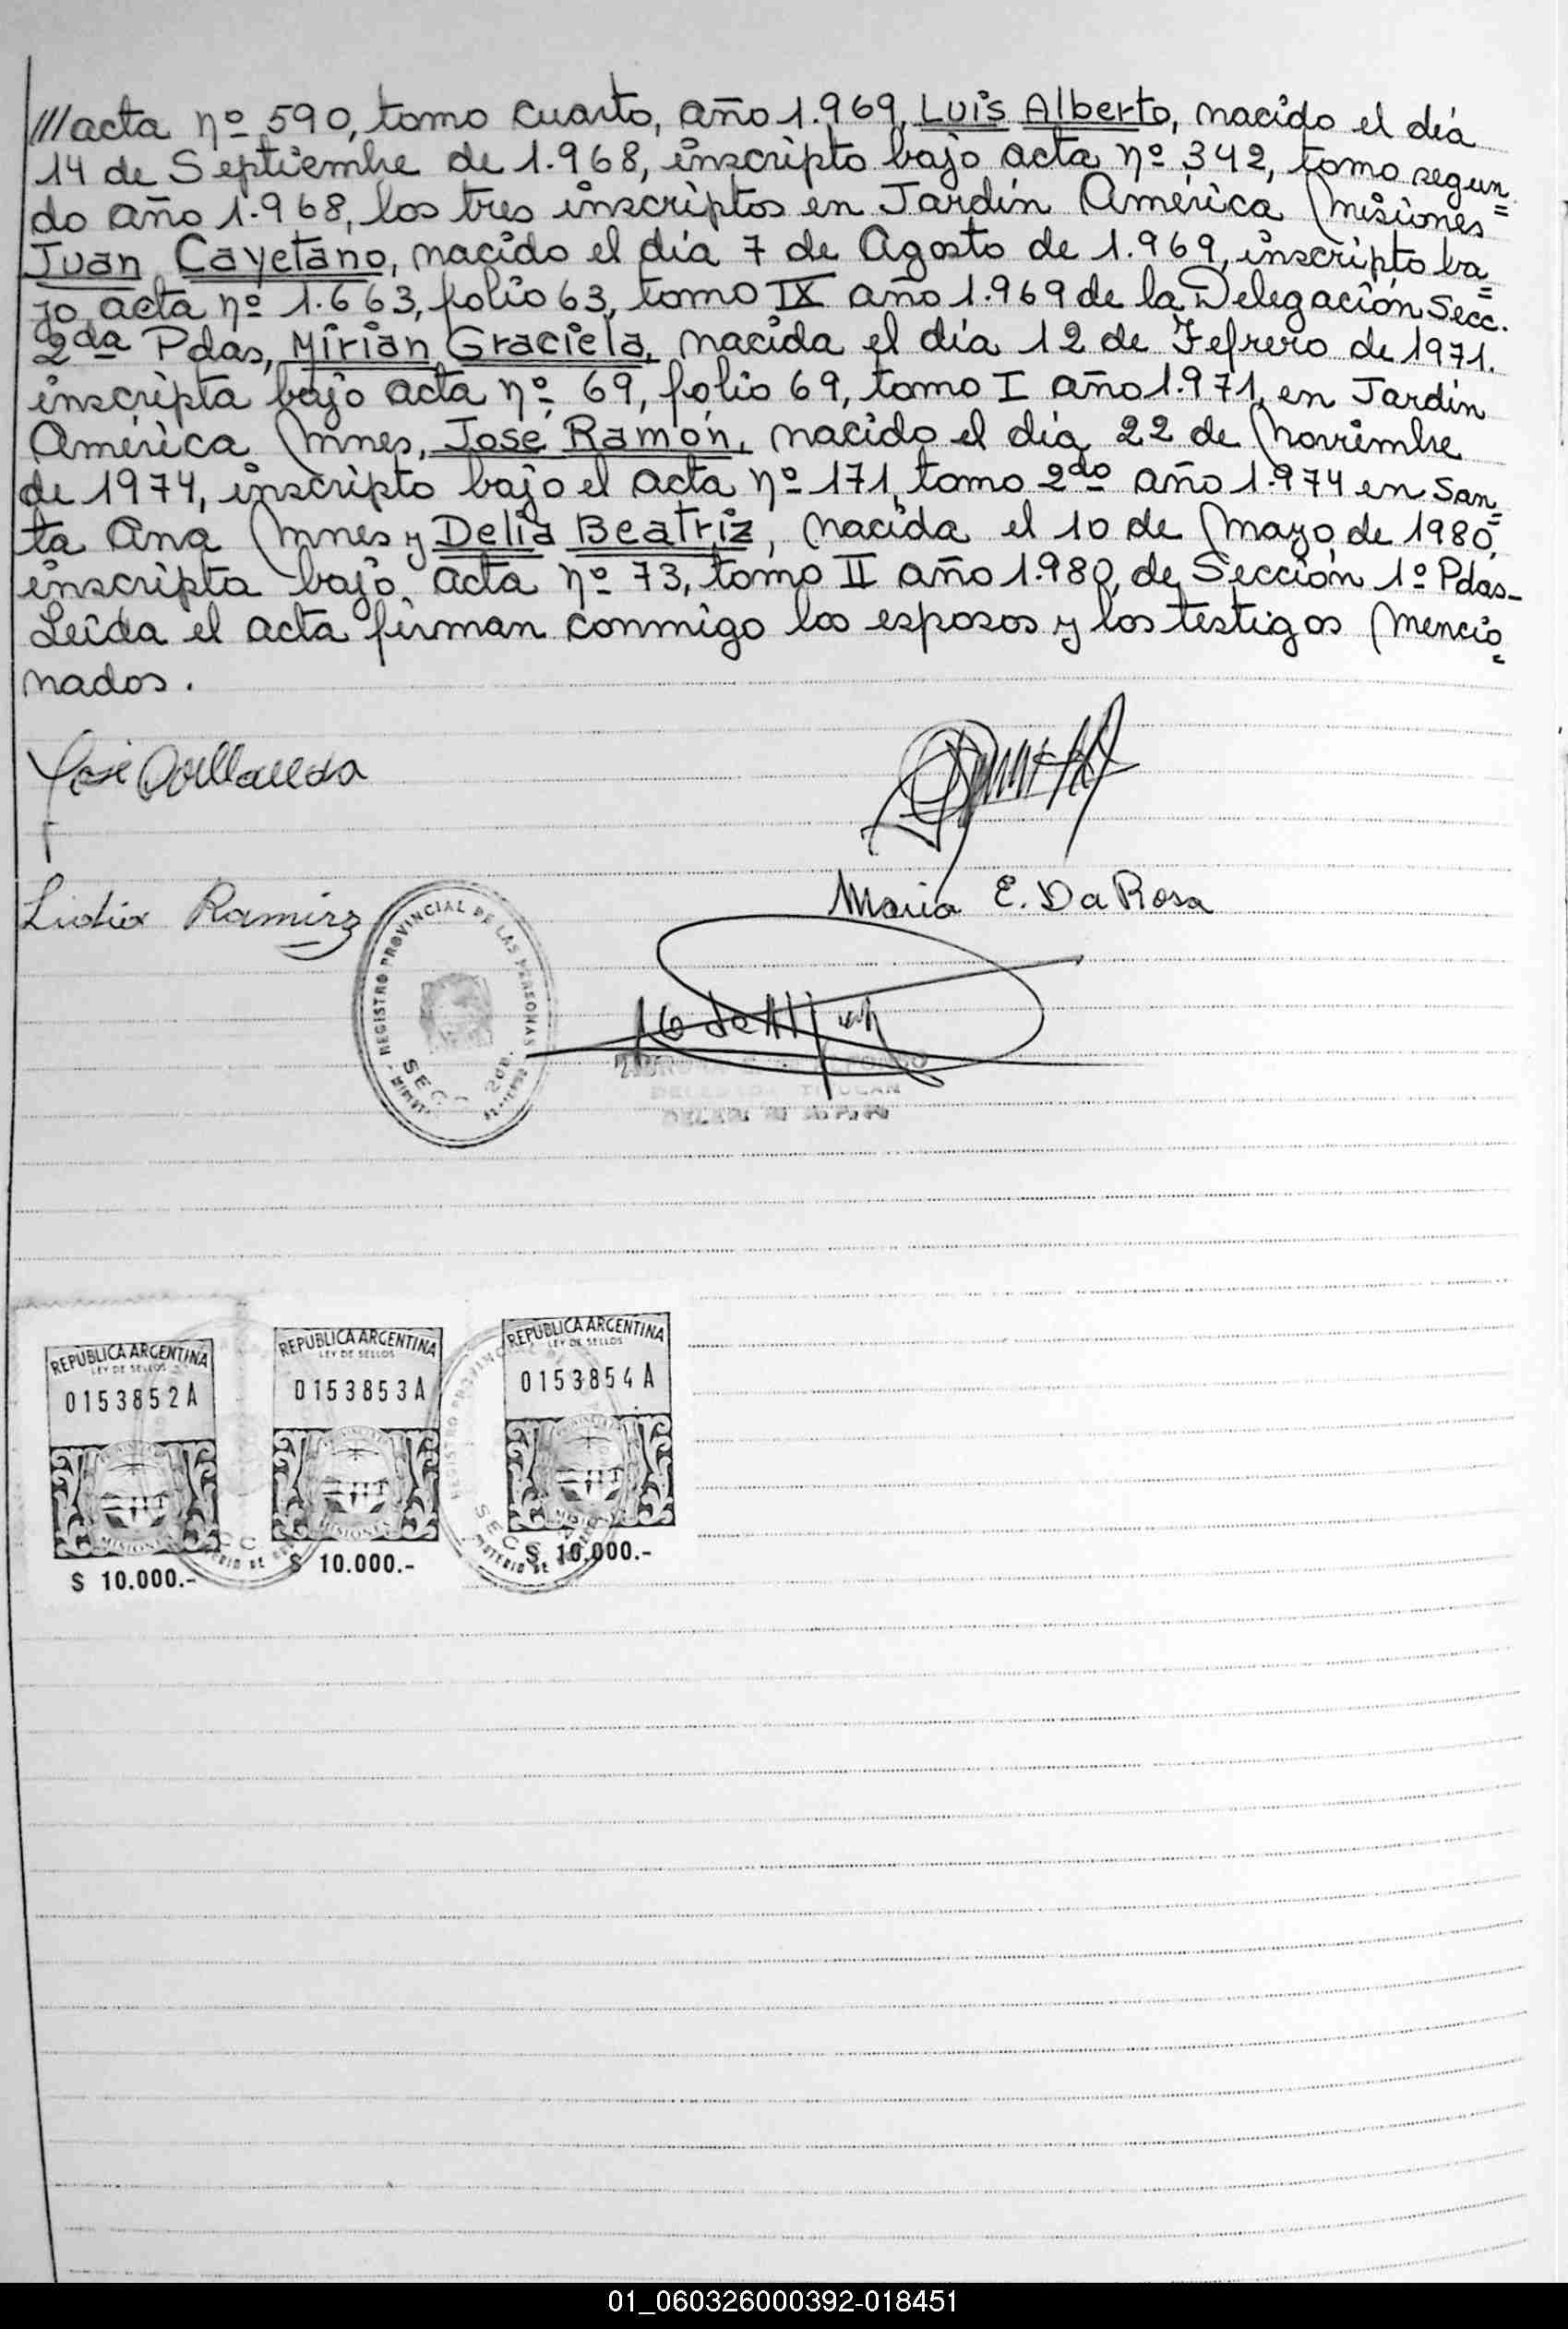 ///acta nº 590, tomo cuarto, año 1.969, Luis Alberto, nacido el día
14 de Septiembre de 1.968, inscripto bajo acta nº 342, tomo segun
do año 1.968, los tres inscriptos en Jardín América Misiones=
Juan Cayetano, nacido el día 7 de Agosto de 1.969, inscripto ba=
jo acta nº 1.663, folio 63, tomo IX año 1.969 de la Delegación Secc.
2da Pdas, Mirian Graciela, nacida el día 12 de Febrero de 1971.
inscripta bajo acta nº 69, folio 69, tomo I año 1.971, en Jardín
América Mnes, José Ramón, nacido el día 22 de Noviembre
de 1974, inscripto bajo el acta nº 171, tomo 2do año 1.974 en San=
ta Ana Mnes y Delia Beatriz, nacida el 10 de Mayo de 1980,
inscripta bajo acta nº 73, tomo II año 1.980, de Sección 1º Pdas-
Leída el acta firman conmigo los esposos y los testigos mencio=
nados.
José
Lidia Ramirz
Maria E. Da Rosa
REGISTRO PROVINCIAL DE LAS PERSONAS
SECC. 2da.
DELEGADA TITULAR
REPUBLICA ARGENTINA
LEY DE SELLOS
0153852A
MISIONES
$ 10.000.-
REPUBLICA ARGENTINA
LEY DE SELLOS
0153853A
MISIONES
$ 10.000.-
REPUBLICA ARGENTINA
LEY DE SELLOS
0153854A
MISIONES
$ 10.000.-
01_060326000392-018451